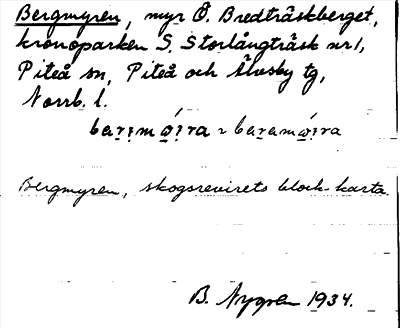 Bergmyren, myr Ö. Bredträskberget,
kronoparken S. Storlångträsk nr 1,
Piteå sn, Piteå och Älvsby tg,
Norrb. l.
Bergmyren, skogsrevirets block-karta
B. Nygren 1934.